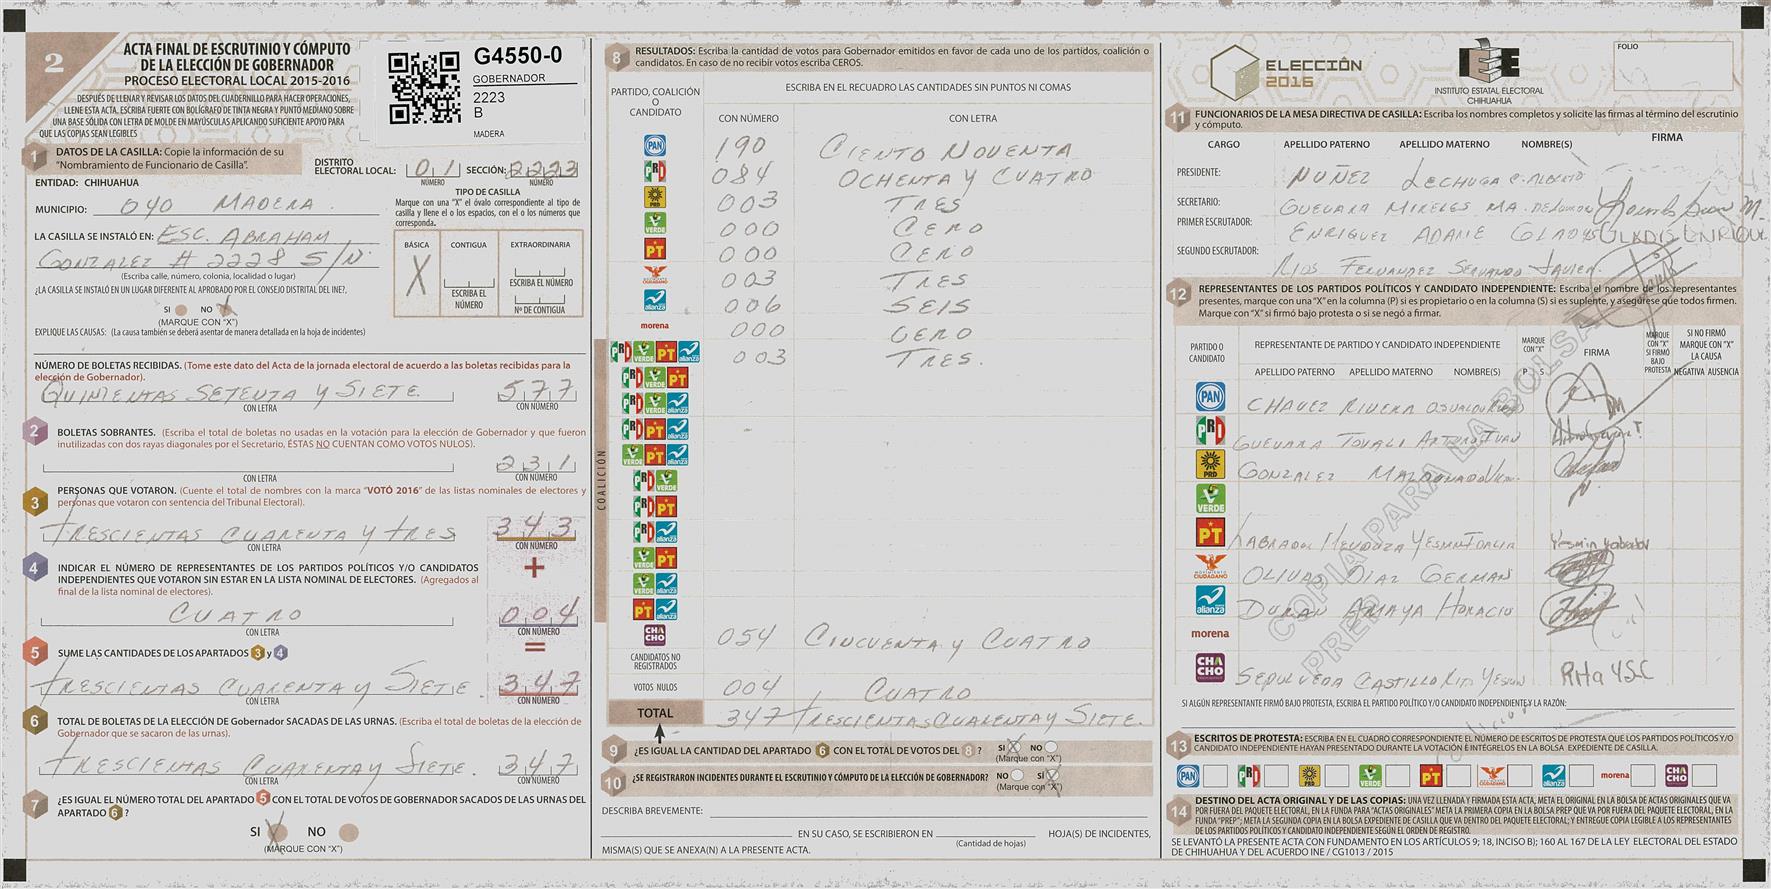 2
ACTA FINAL DE ESCRUTINIO Y CÓMPUTO
DE LA ELECCIÓN DE GOBERNADOR
PROCESO ELECTORAL LOCAL 2015-2016
DESPUÉS DE LLENAR Y REVISAR LOS DATOS DEL CUADERNILLO PARA HACER OPERACIONES,
LLENE ESTA ACTA. ESCRIBA FUERTE CON BOLÍGRAFO DE TINTA NEGRA Y PUNTO MEDIANO SOBRE
UNA BASE SÓLIDA CON LETRA DE MOLDE EN MAYÚSCULAS APLICANDO SUFICIENTE APOYO PARA
QUE LAS COPIAS SEAN LEGIBLES
G4550-0
GOBERNADOR
2223
B
MADERA
1 DATOS DE LA CASILLA: Copie la información de su
"Nombramiento de Funcionario de Casilla".
DISTRITO
ELECTORAL LOCAL: 01 SECCIÓN: 2223
NÚMERO NÚMERO
ENTIDAD: CHIHUAHUA
MUNICIPIO: 040 MADERA.
LA CASILLA SE INSTALÓ EN: ESC. ABRAHAM
GONZALEZ # 2228 S/N.
(Escriba calle, número, colonia, localidad o lugar)
¿LA CASILLA SE INSTALÓ EN UN LUGAR DIFERENTE AL APROBADO POR EL CONSEJO DISTRITAL DEL INE?,
SI NO X
(MARQUE CON "X")
EXPLIQUE LAS CAUSAS: (La causa también se deberá asentar de manera detallada en la hoja de incidentes)
TIPO DE CASILLA
Marque con una "X" el óvalo correspondiente al tipo de
casilla y llene el o los espacios, con el o los números que
corresponda.
BÁSICA CONTIGUA EXTRAORDINARIA
X
ESCRIBA EL NÚMERO
ESCRIBA EL
NÚMERO
Nº DE CONTIGUA
NÚMERO DE BOLETAS RECIBIDAS. (Tome este dato del Acta de la jornada electoral de acuerdo a las boletas recibidas para la
elección de Gobernador).
QUINIENTAS SETENTA Y SIETE 577
CON LETRA CON NÚMERO
2 BOLETAS SOBRANTES. (Escriba el total de boletas no usadas en la votación para la elección de Gobernador y que fueron
inutilizadas con dos rayas diagonales por el Secretario, ÉSTAS NO CUENTAN COMO VOTOS NULOS).
231
CON LETRA CON NÚMERO
3 PERSONAS QUE VOTARON. (Cuente el total de nombres con la marca "VOTÓ 2016" de las listas nominales de electores y
personas que votaron con sentencia del Tribunal Electoral).
TRESCIENTAS CUARENTA Y TRES 343
CON LETRA CON NÚMERO
+
4 INDICAR EL NÚMERO DE REPRESENTANTES DE LOS PARTIDOS POLÍTICOS Y/O CANDIDATOS
INDEPENDIENTES QUE VOTARON SIN ESTAR EN LA LISTA NOMINAL DE ELECTORES. (Agregados al
final de la lista nominal de electores).
CUATRO 004
CON LETRA CON NÚMERO
=
5 SUME LAS CANTIDADES DE LOS APARTADOS 3 y 4
TRESCIENTAS CUARENTA Y SIETE. 347
CON LETRA CON NÚMERO
6 TOTAL DE BOLETAS DE LA ELECCIÓN DE Gobernador SACADAS DE LAS URNAS. (Escriba el total de boletas de la elección de
Gobernador que se sacaron de las urnas).
TRESCIENTAS CUARENTA Y SIETE. 347
CON LETRA CON NÚMERO
7 ¿ES IGUAL EL NÚMERO TOTAL DEL APARTADO 5 CON EL TOTAL DE VOTOS DE GOBERNADOR SACADOS DE LAS URNAS DEL
APARTADO 6?
SI X NO
(MARQUE CON "X")
8 RESULTADOS: Escriba la cantidad de votos para Gobernador emitidos en favor de cada uno de los partidos, coalición o
candidatos. En caso de no recibir votos escriba CEROS.
PARTIDO, COALICIÓN
O
CANDIDATO
ESCRIBA EN EL RECUADRO LAS CANTIDADES SIN PUNTOS NI COMAS
CON NÚMERO CON LETRA
PAN 190 CIENTO NOVENTA
PRI 084 OCHENTA Y CUATRO
PRD 003 TRES
VERDE 000 CERO
PT 000 CERO
003 TRES
alianza 006 SEIS
morena 000 CERO
PRI VERDE PT alianza 003 TRES.
COALICIÓN
PRI VERDE PT
PRI VERDE alianza
PRI PT alianza
VERDE PT alianza
PRI VERDE
PRI PT
PRI alianza
VERDE PT
VERDE alianza
PT alianza
CHACHO 054 CINCUENTA Y CUATRO
CANDIDATOS NO
REGISTRADOS
VOTOS NULOS 004 CUATRO
TOTAL 347 TRESCIENTAS CUARENTA Y SIETE.
9 ¿ES IGUAL LA CANTIDAD DEL APARTADO 6 CON EL TOTAL DE VOTOS DEL 8? SI X NO
(Marque con "X")
10 ¿SE REGISTRARON INCIDENTES DURANTE EL ESCRUTINIO Y CÓMPUTO DE LA ELECCIÓN DE GOBERNADOR? NO SÍ X
(Marque con "X")
DESCRIBA BREVEMENTE:
EN SU CASO, SE ESCRIBIERON EN HOJA(S) DE INCIDENTES,
(Cantidad de hojas)
MISMA(S) QUE SE ANEXA(N) A LA PRESENTE ACTA.
ELECCIÓN
2016
IEE
INSTITUTO ESTATAL ELECTORAL
CHIHUAHUA
FOLIO
11 FUNCIONARIOS DE LA MESA DIRECTIVA DE CASILLA: Escriba los nombres completos y solicite las firmas al término del escrutinio
y cómputo.
CARGO APELLIDO PATERNO APELLIDO MATERNO NOMBRE(S) FIRMA
PRESIDENTE: NUÑEZ LECHUGA C. ALBERTO
SECRETARIO: GUEVARA MIRELES MA.
PRIMER ESCRUTADOR: ENRIQUEZ ADAME GLADYS GLADIS ENRIQUE
SEGUNDO ESCRUTADOR: RIOS FERNANDEZ SERVANDO JAVIER.
12 REPRESENTANTES DE LOS PARTIDOS POLÍTICOS Y CANDIDATO INDEPENDIENTE: Escriba el nombre de los representantes
presentes, marque con una "X" en la columna (P) si es propietario o en la columna (S) si es suplente, y asegúrese que todos firmen.
Marque con "X" si firmó bajo protesta o si se negó a firmar.
PARTIDO O
CANDIDATO
REPRESENTANTE DE PARTIDO Y CANDIDATO INDEPENDIENTE
APELLIDO PATERNO APELLIDO MATERNO NOMBRE(S)
MARQUE
CON "X"
P S
FIRMA
MARQUE
CON "X"
SI FIRMÓ
BAJO
PROTESTA
SI NO FIRMÓ
MARQUE CON "X"
LA CAUSA
NEGATIVA AUSENCIA
PAN CHAVEZ RIVERA
PRI GUEVARA TOVALI ARTURO IVAN
PRD GONZALEZ MALDONADO
VERDE
PT LABRADOR MENDOZA YESMIN IDALIA Yesmin Labrador
MOVIMIENTO CIUDADANO OLIVAS DIAZ GERMAN
alianza DURAN AMAYA HORACIO
morena
CHACHO SEPULVEDA CASTILLO RITA YESENIA Rita YSC
COPIA PARA LA BOLSA
PREP
SI ALGÚN REPRESENTANTE FIRMÓ BAJO PROTESTA, ESCRIBA EL PARTIDO POLÍTICO Y/O CANDIDATO INDEPENDIENTE,Y LA RAZÓN:
13 ESCRITOS DE PROTESTA: ESCRIBA EN EL CUADRO CORRESPONDIENTE EL NÚMERO DE ESCRITOS DE PROTESTA QUE LOS PARTIDOS POLÍTICOS Y/O
CANDIDATO INDEPENDIENTE HAYAN PRESENTADO DURANTE LA VOTACIÓN E INTÉGRELOS EN LA BOLSA EXPEDIENTE DE CASILLA.
PAN PRI PRD VERDE PT alianza morena CHACHO
14 DESTINO DEL ACTA ORIGINAL Y DE LAS COPIAS: UNA VEZ LLENADA Y FIRMADA ESTA ACTA, META EL ORIGINAL EN LA BOLSA DE ACTAS ORIGINALES QUE VA
POR FUERA DEL PAQUETE ELECTORAL, EN LA FUNDA PARA "ACTAS ORIGINALES" META LA PRIMERA COPIA EN LA BOLSA PREP QUE VA POR FUERA DEL PAQUETE ELECTORAL, EN LA
FUNDA "PREP"; META LA SEGUNDA COPIA EN LA BOLSA EXPEDIENTE DE CASILLA QUE VA DENTRO DEL PAQUETE ELECTORAL; Y ENTREGUE COPIA LEGIBLE A LOS REPRESENTANTES
DE LOS PARTIDOS POLÍTICOS Y CANDIDATO INDEPENDIENTE SEGÚN EL ORDEN DE REGISTRO.
SE LEVANTÓ LA PRESENTE ACTA CON FUNDAMENTO EN LOS ARTÍCULOS 9; 18, INCISO B); 160 AL 167 DE LA LEY ELECTORAL DEL ESTADO
DE CHIHUAHUA Y DEL ACUERDO INE / CG1013 / 2015